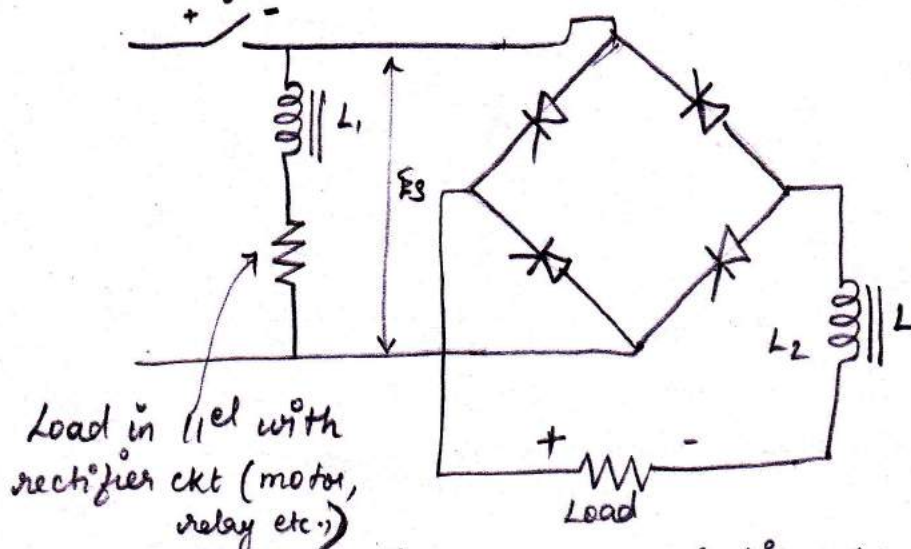 + -
L₁
Es
L₂
L
Load in ||el with
rectifier ckt (motor,
relay etc.,)
+ -
Load